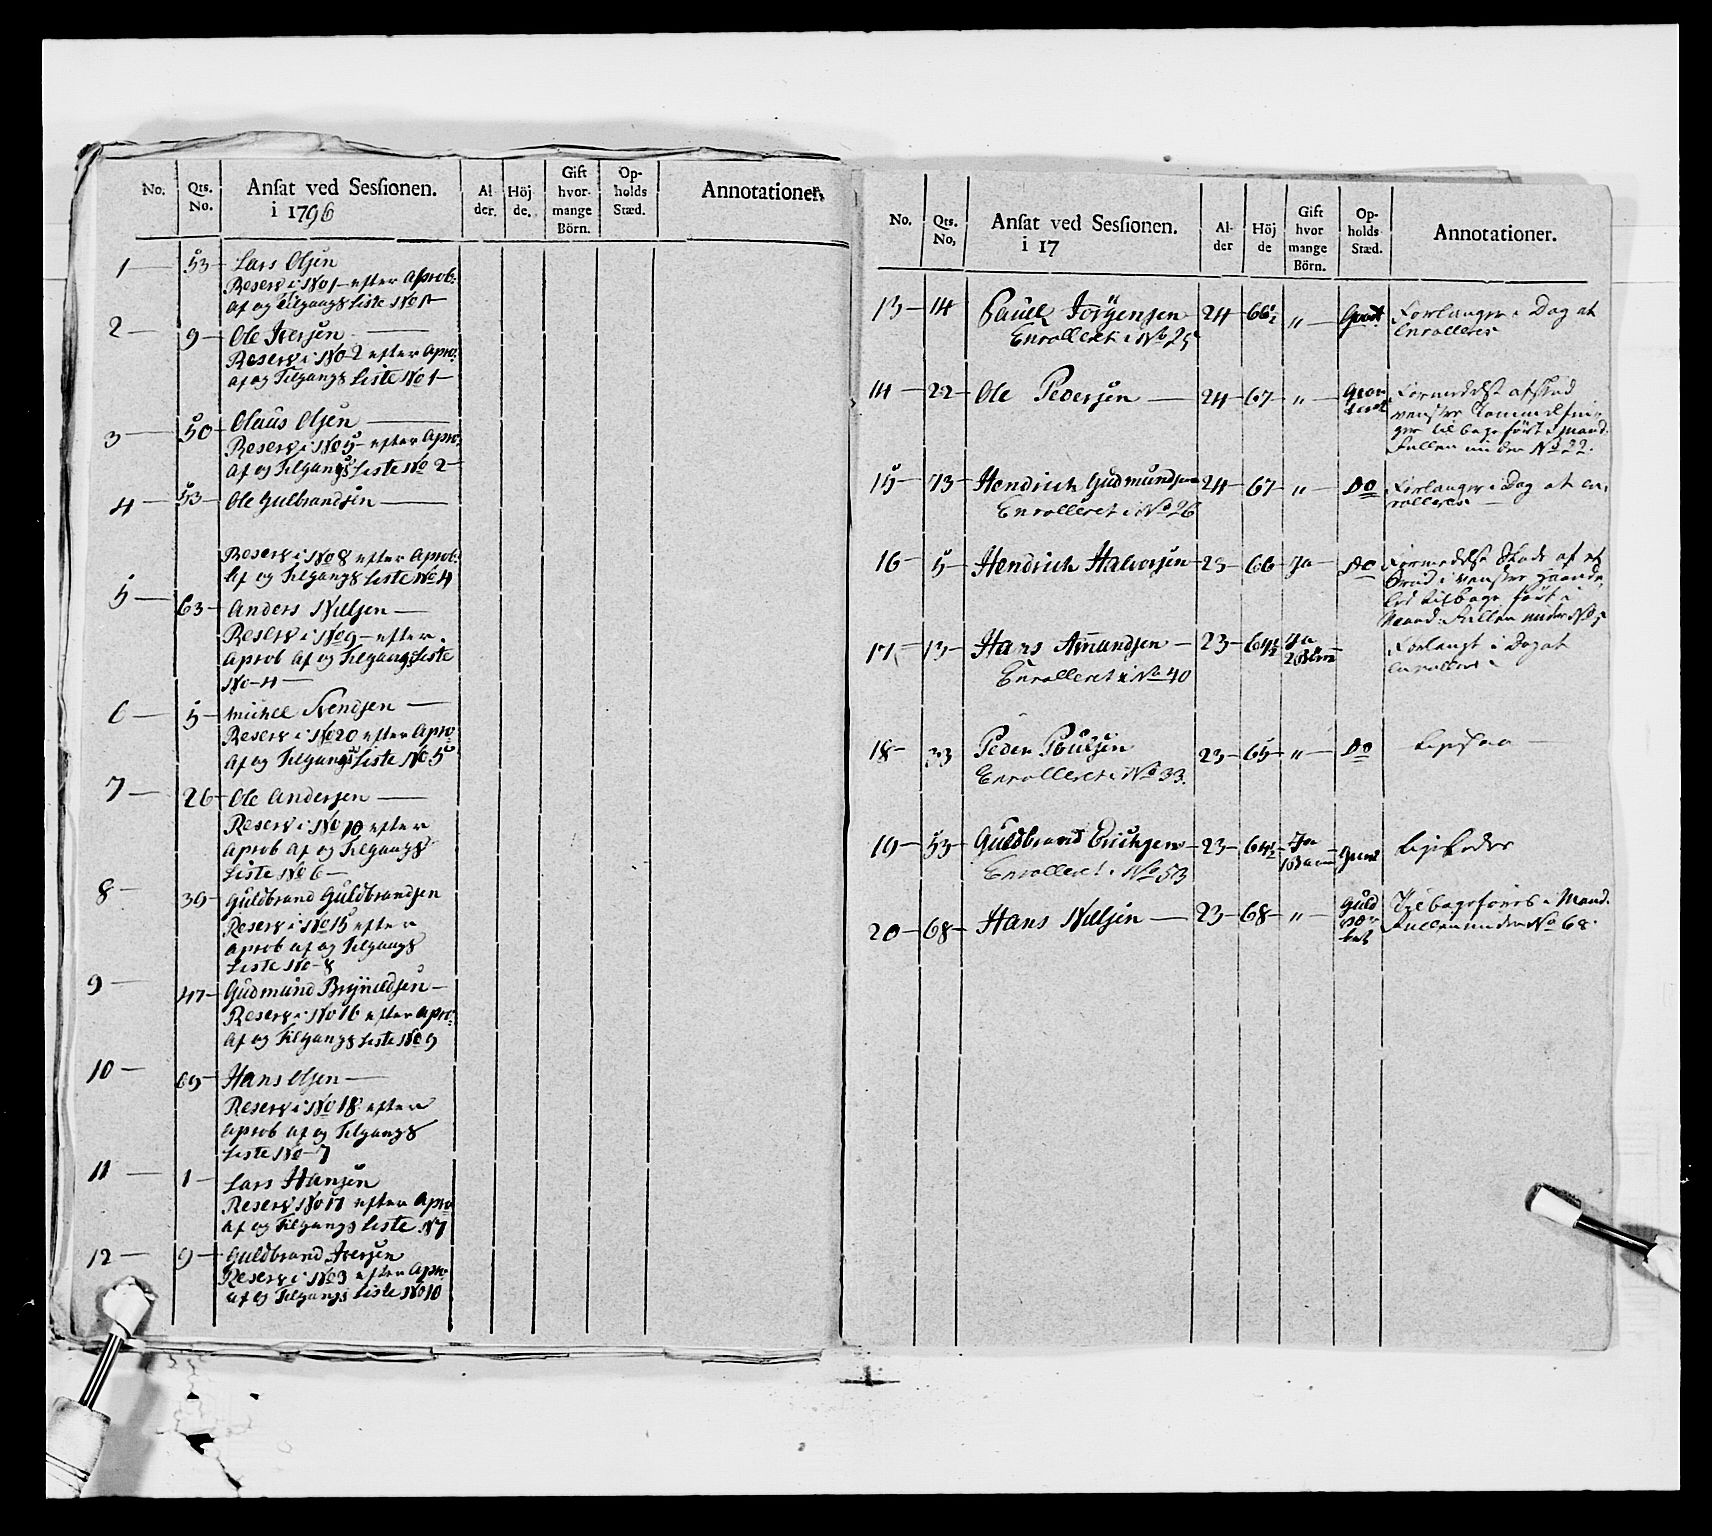 No. Qts. No. Ansat ved Sessionen. i 1796 Al- der. Höj de. Gift hvor- mange Börn. Op- holds Stæd. Annotationer.
1 — 53 — Lars Olsen
Reserv i No 1 — efter Aprob:
Af og Tilgangs Liste No 1 —
2 — 9 — Ole Iversen —
Reserv i No 2 efter Apro:
af og Tilgangs Liste No 1 —
3 — 50 — Olaus Olsen —
Reserv i No 5 — efter Apro:
Af og Tilgangs Liste No 2 —
4 — 53 — Ole Gulbrandsen —
Reserv i No 8 efter Aprob:
Af og Tilgangs Liste No 4
5 — 63 — Anders Nielsen —
Reserv i No 9 — efter
Aprob Af og Tilgangs Liste
No 4 —
6 — 5 — Michel Svendsen —
Reserv i No 20 efter Apro
Af og Tilgangs Liste No 5
7 — 26 — Ole Andersen —
Reserv i No 10 efter
Aprob Af og Tilgangs
Liste No 6 —
8 — 39 — Guldbrand Guldbrandsen
Reserv i No 15 efter
Aprob af og Tilgangs
Liste No 8
9 — 47 — Gudmund Brynildsen —
Reserv i No 16 efter Apro:
Af og Tilgangs Liste No 9
10 — 69 — Hans Olsen —
Reserv i No 18 efter
Aprob Af og Tilgangs
Liste No 7
11 — 1 — Lars Hansen
Reserv No 17 efter Apro
Af og Tilgangs Liste N 7
12 — 9 — Guldbrand Iversen
Reserv i No 3 efter Apro
af og Tilgangs Liste No 10
No. Qts. No, Ansat ved Sessionen. i 17 Al- der Höj de Gift hvor mange Börn. Op- holds Stæd. Annotationer.
13 — 14 Pauel Jorgensen 24 — 66½ " — Forlanger i Dag at
Enrolleret i No 25 enrolleres
14 — 22 — Ole Pedersen — 24 — 67 — " — Formedelst
venster Tommelfin-
ger tilbageført i Mand:
Rullen under No 22.
15 — 73 — Hendrich Gudmundsen 24 — 67 — " — Do Forlanger i Dag at en-
Enrolleret i No 26 rolleres —
16 — 5 — Hendrich Halvorsen — 23 — 66 — Ja — Do Formedelst Skade af et
Brud i venster
tilbage ført i
Mand: Rullen under No 5
17 — 13 — Hans Amundsen — 23 — 64½ Ja 2 Börn Forlangt i Dag at
Enrolleret i No 40 enrolleres —
18 — 33 Peder Poulsen 23 — 65 — " — Do Ligesaa —
Enrolleret i No 33.
19 — 53 — Guldbrand Erichsen — 23 — 64½ Ja 1 Barn
Enrolleret i No 53
20 — 68 — Hans Nielsen — 23 — 68 — " — Tilbageføres i Mand:
Rullen under No 68.